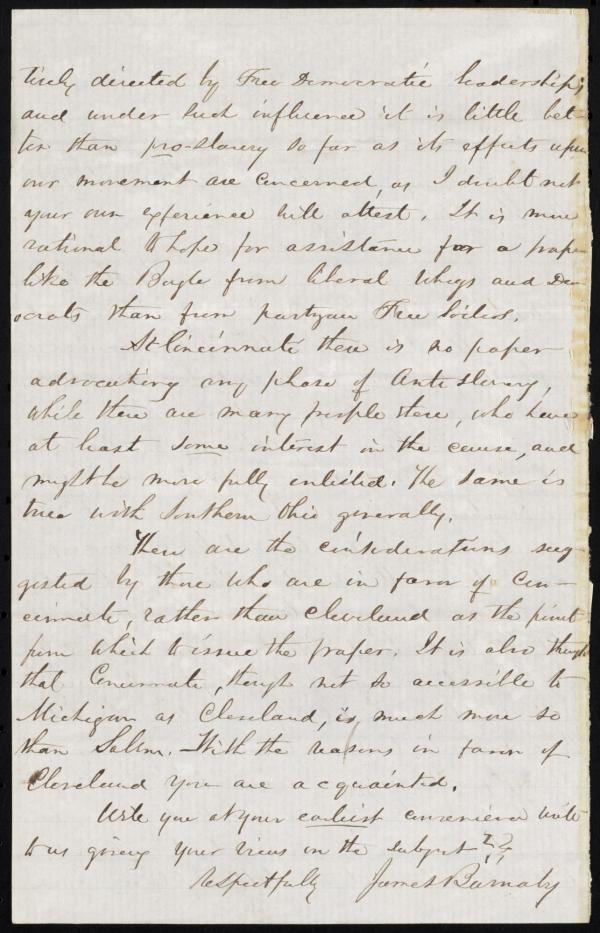 tirely directed by Free Democratic leaderships
and under such influence it is little bet-
ter than pro-slavery so far as its effects upon
our movement are concerned, as I doubt not
your own experience will attest. It is more
rational to hope for assistance for a paper
like the Bugle from liberal Whigs and Dem
ocrats than from partyzan Free Soilers.
At Cincinnati there is no paper
advocating any phase of Anti slavery,
while there are many people there, who have
at least some interest in the cause, and
might be more fully enlisted. The same is
true with Southern Ohio generally.
These are the considerations sug-
gested by those who are in favor of Cin-
cinnati, rather than Cleveland as the point
from which to issue the paper. It is also thought
that Cincinnati, though not so accessible to
Michigan as Cleveland, is much more so
than Salem. With the reasons in favor of
Cleveland you are acquainted.
Will you at your earliest convenience write
to us giving your views on the subject
Respectfully James Barnaby